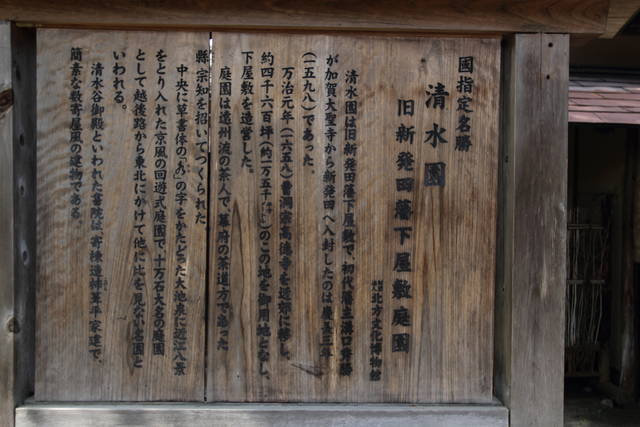 國指定名勝
清水園
旧新発田藩下屋敷庭園
北方文化博物館
清水園は旧新発田藩下屋敷で、初代藩主溝口秀勝
が加賀大聖寺から新発田へ入封したのは慶長三年
(一五九八)であった。
万治元年(一六五八)曹洞宗高徳寺を近郊に移し、
約四千六百坪(約一万五千㎡)のこの地を御用地となし、
下屋敷を造営した。
庭園は遠州流の茶人で、幕府の茶道方であった
縣宗知を招いてつくられた
中央に草書体の「水」の字をかたどった大池泉に近江八景
をとり入れた京風の回遊式庭園で、十万石大名の庭園
として越後路から東北にかけて他に比を見ない名園と
いわれる。
清水谷御殿といわれた書院は、寄棟造柿葺平家建で、
簡素な数寄屋風の建物である。